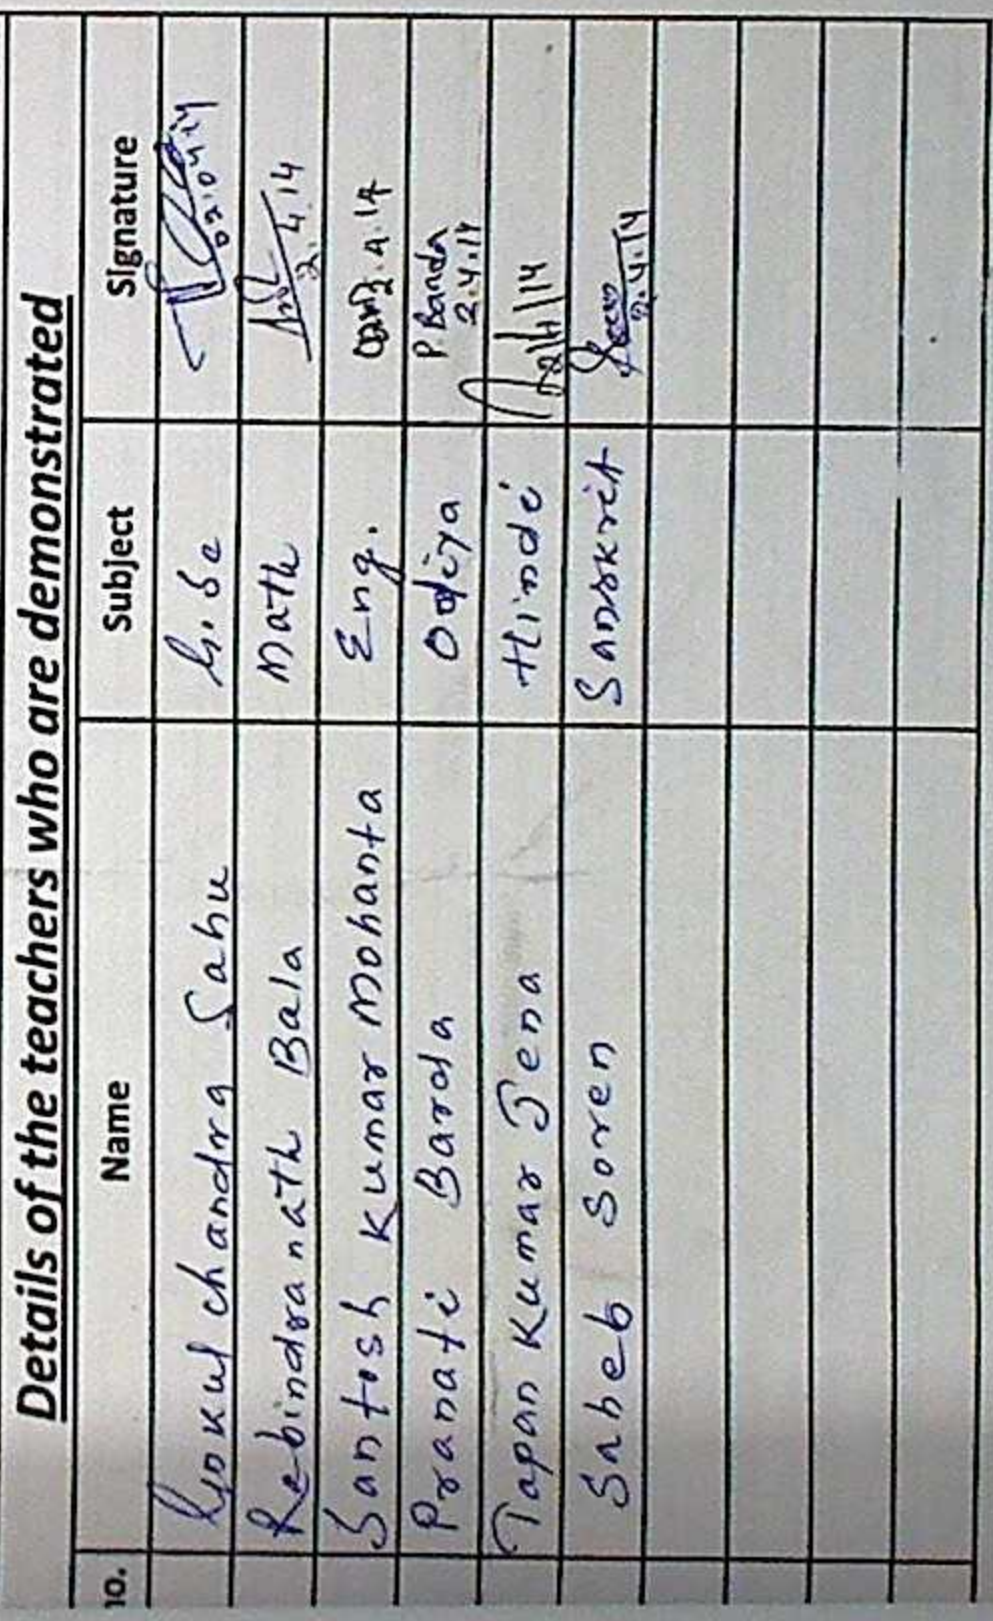 Details of the teachers who are demonstrated
no. Name Subject Signature
Gokul chandra Sahu G.Sc 02.04.14
Rabindranath Bala Math 2.4.14
Santosh Kumar Mohanta Eng. 2.4.14
Pranati Barda Odiya P Banda 2.4.14
Tapan Kumar Jena Hindi 2/4/14
Saheb Soren Sanskrit 2.4.14